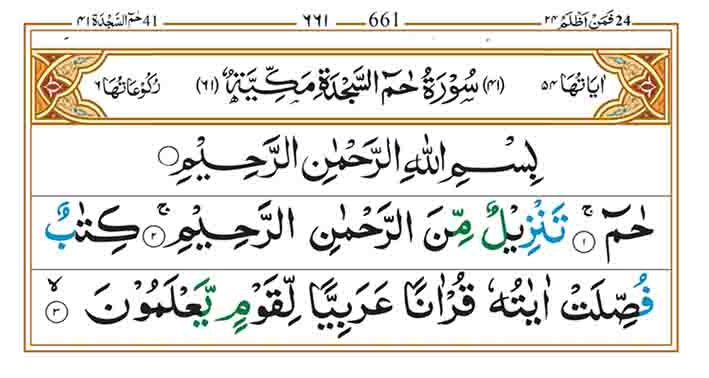 24 فَمَنْ اَظْلَمُ ٢٤ 661 ٦٦١ 41 حٰمٓ السَّجْدَة ٤١
اٰيَاتُهَا ٥٤ (٤١) سُوْرَةُ حٰمٓ السَّجْدَةِ مَكِّيَّةٌ (٦١) رُكُوْعَاتُهَا ٦
بِسْمِ اللّٰهِ الرَّحْمٰنِ الرَّحِيْمِ
حٰمٓ ۚ ١ تَنْزِيْلٌ مِّنَ الرَّحْمٰنِ الرَّحِيْمِ ۚ ٢ كِتٰبٌ
فُصِّلَتْ اٰيٰتُهٗ قُرْاٰنًا عَرَبِيًّا لِّقَوْمٍ يَّعْلَمُوْنَ ۙ ٣